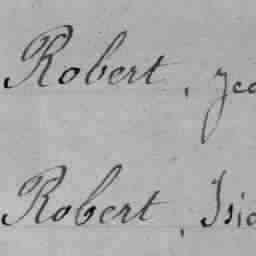 Robert, Jea
Robert, Isid